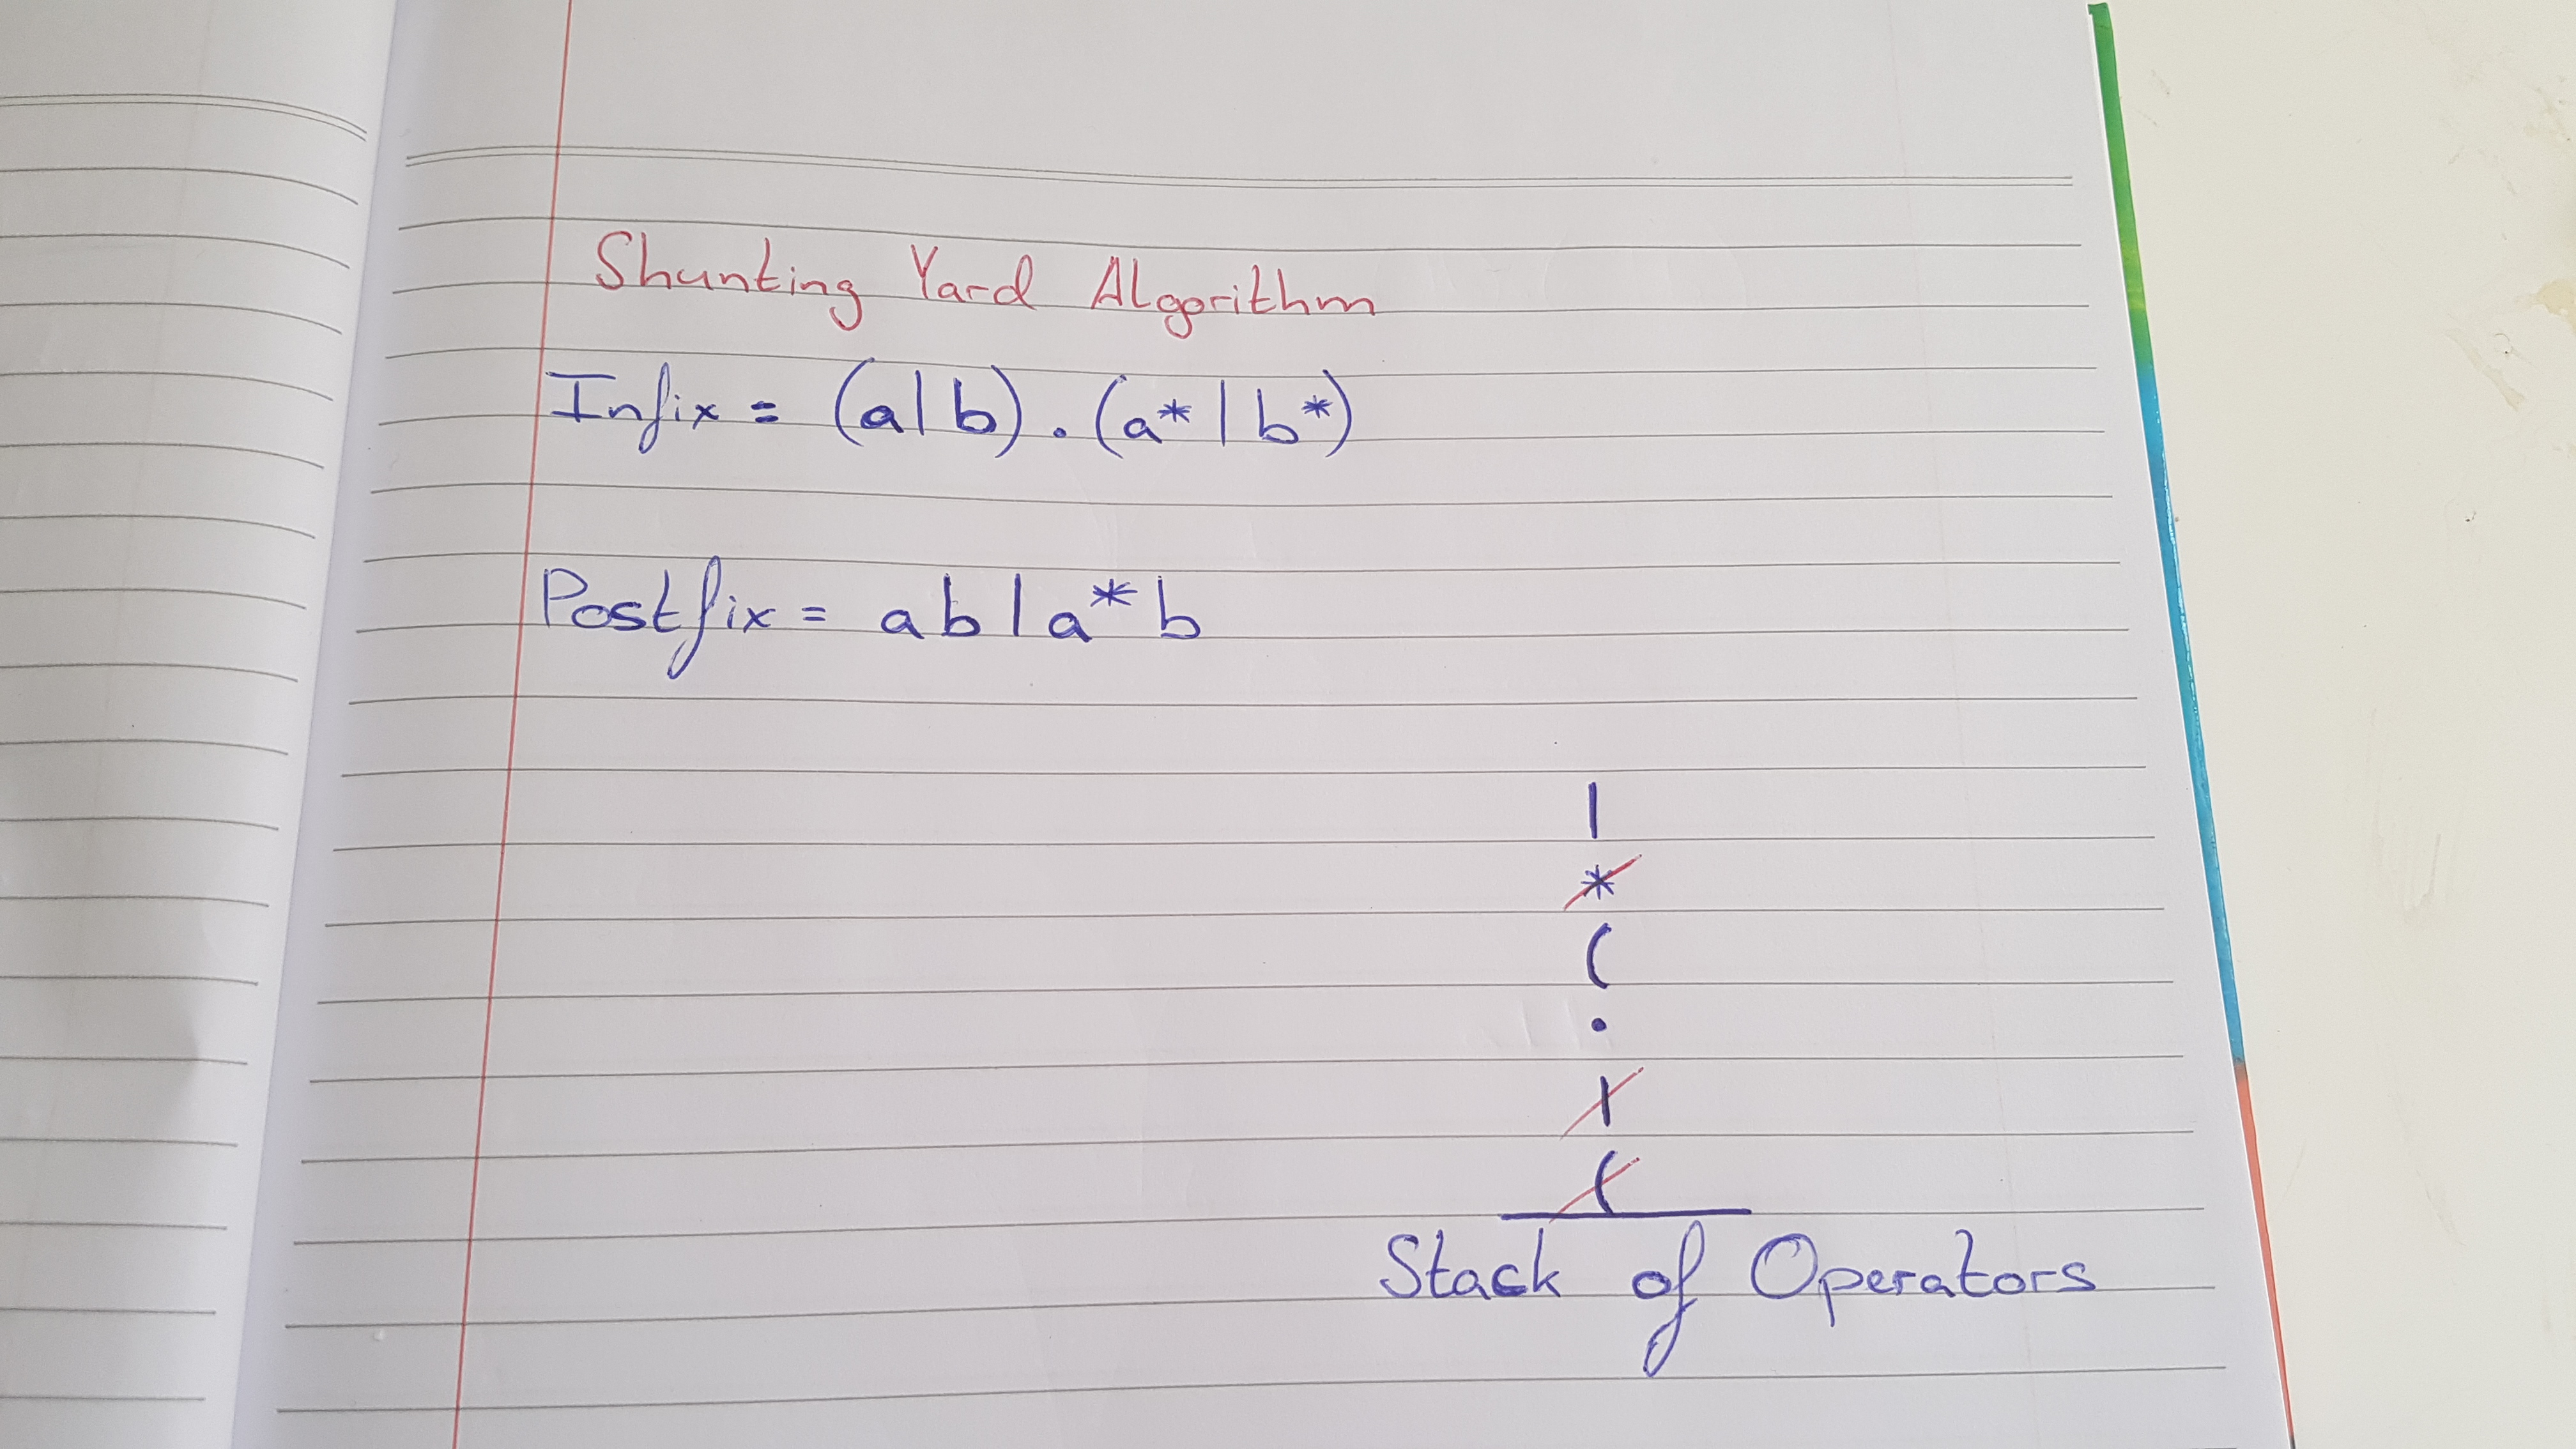 Shunting Yard Algorithm
Infix = (a|b).(a*|b*)
Postfix = ab|a*b
|
*
(
.
|
(
Stack of Operators